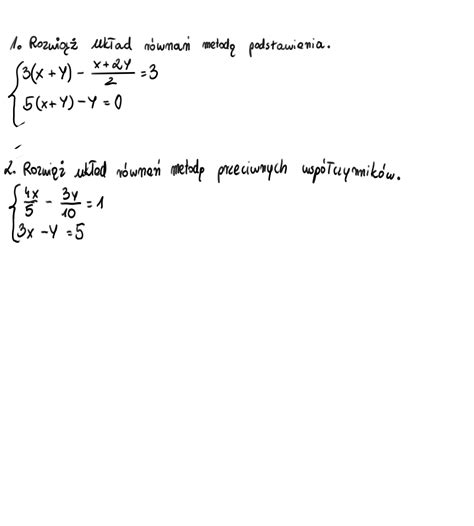 1. Rozwiąż układ równań metodą podstawiania.
{ 3(x + y) - \frac{x+2y}{2} = 3
5(x+y) - y = 0
2. Rozwiąż układ równań metodą przeciwnych współczynników.
{ \frac{4x}{5} - \frac{3y}{10} = 1
3x - y = 5